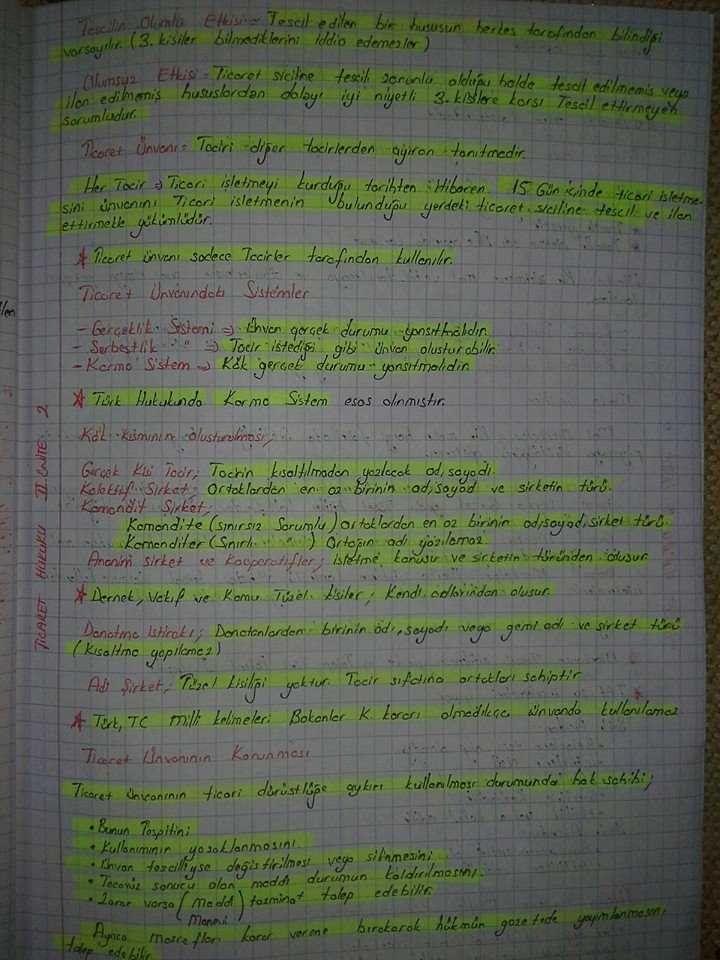 Tescilin Olumlu Etkisi = Tescil edilen bir hususun herkes tarafından bilindiği
varsayılır. (3. kişiler bilmediklerini iddia edemezler)
Olumsuz Etkisi = Ticaret siciline tescili zorunlu olduğu halde tescil edilmemiş veya
ilan edilmemiş hususlardan dolayı iyi niyetli 3. kişilere karşı Tescil ettirmeyen
sorumludur.
Ticaret Ünvanı = Taciri diğer tacirlerden ayıran tanıtmadır.
Her Tacir => Ticari işletmeyi kurduğu tarihten itibaren 15 Gün içinde ticari işletme-
sini ünvanını Ticari işletmenin bulunduğu yerdeki ticaret siciline tescil ve ilan
ettirmekle yükümlüdür.
* Ticaret ünvanı sadece Tacirler tarafından kullanılır.
Ticaret Ünvanındaki Sistemler
- Gerçeklik Sistemi => Ünvan gerçek durumu yansıtmalıdır.
- Serbestlik " => Tacir istediği gibi ünvan oluşturabilir.
- Karma Sistem => Kök gerçek durumu yansıtmalıdır.
* Türk Hukukunda Karma Sistem esas alınmıştır.
Kök kısmının oluşturulması;
Gerçek Kişi Tacir; Tacirin kısaltılmadan yazılacak ad, soyadı.
Kolektif Şirket; Ortaklardan en az birinin ad, soyad ve şirketin türü.
Komandit Şirket;
Komandite (sınırsız Sorumlu) ortaklardan en az birinin ad, soyad, şirket türü.
Komanditer (Sınırlı " ) Ortağın adı yazılamaz
Anonim şirket ve Kooperatifler; işletme konusu ve şirketin türünden oluşur
* Dernek, Vakıf ve Kamu Tüzel kişiler; Kendi adlarından oluşur.
Donatma İştiraki; Donatanlardan birinin adı, soyadı veya gemi adı ve şirket türü
(Kısaltma yapılamaz)
Adi Şirket; Tüzel kişiliği yoktur. Tacir sıfatına ortakları sahiptir
* Türk, T.C Milli kelimeleri Bakanlar K. kararı olmadıkça ünvanda kullanılamaz.
Ticaret Ünvanının Korunması
Ticaret ünvanının ticari dürüstlüğe aykırı kullanılması durumunda hak sahibi;
• Bunun Tespitini
• Kullanımının yasaklanmasını
• Ünvan tescilliyse değiştirilmesi veya silinmesini
• Tecavüz sonucu olan maddi durumun kaldırılmasını.
• Zarar varsa (maddi) tazminat talep edebilir.
Manevi
Ayrıca masrafları karar verene bırakarak hükmün gazetede yayımlanmasını
talep edebilir.
TİCARET HUKUKU II. ÜNİTE 2